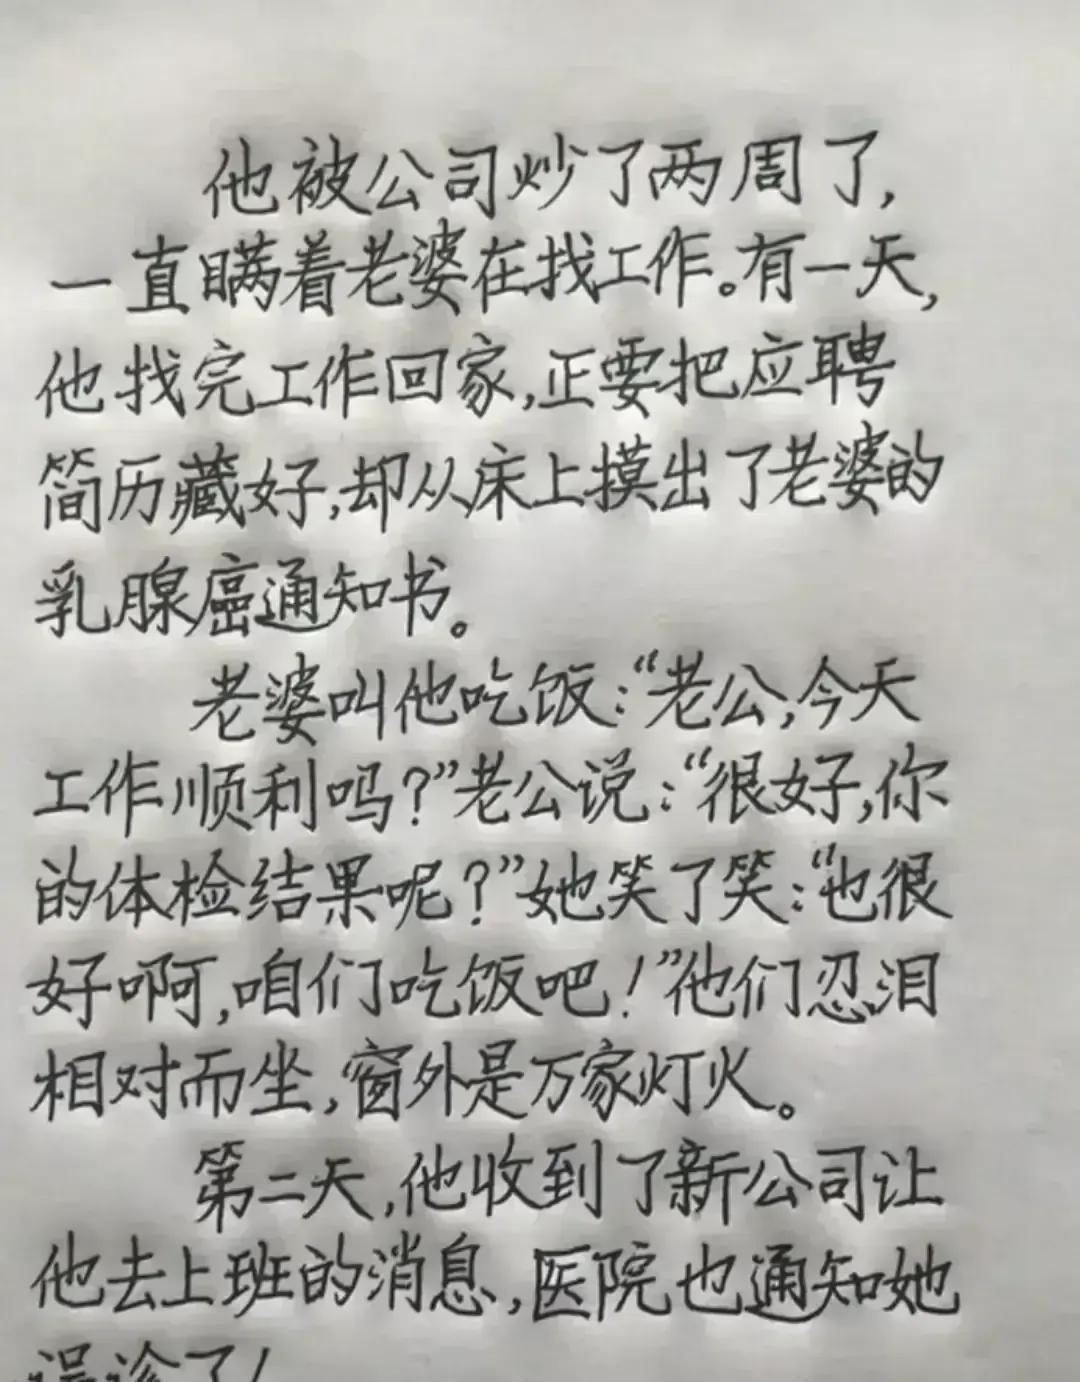 他被公司炒了两周了,
一直瞒着老婆在找工作。有一天,
他找完工作回家,正要把应聘
简历藏好,却从床上摸出了老婆的
乳腺癌通知书。
老婆叫他吃饭:“老公,今天
工作顺利吗?”老公说:“很好,你
的体检结果呢?”她笑了笑:“也很
好啊,咱们吃饭吧!”他们忍泪
相对而坐,窗外是万家灯火。
第二天,他收到了新公司让
他去上班的消息,医院也通知她
误诊了!